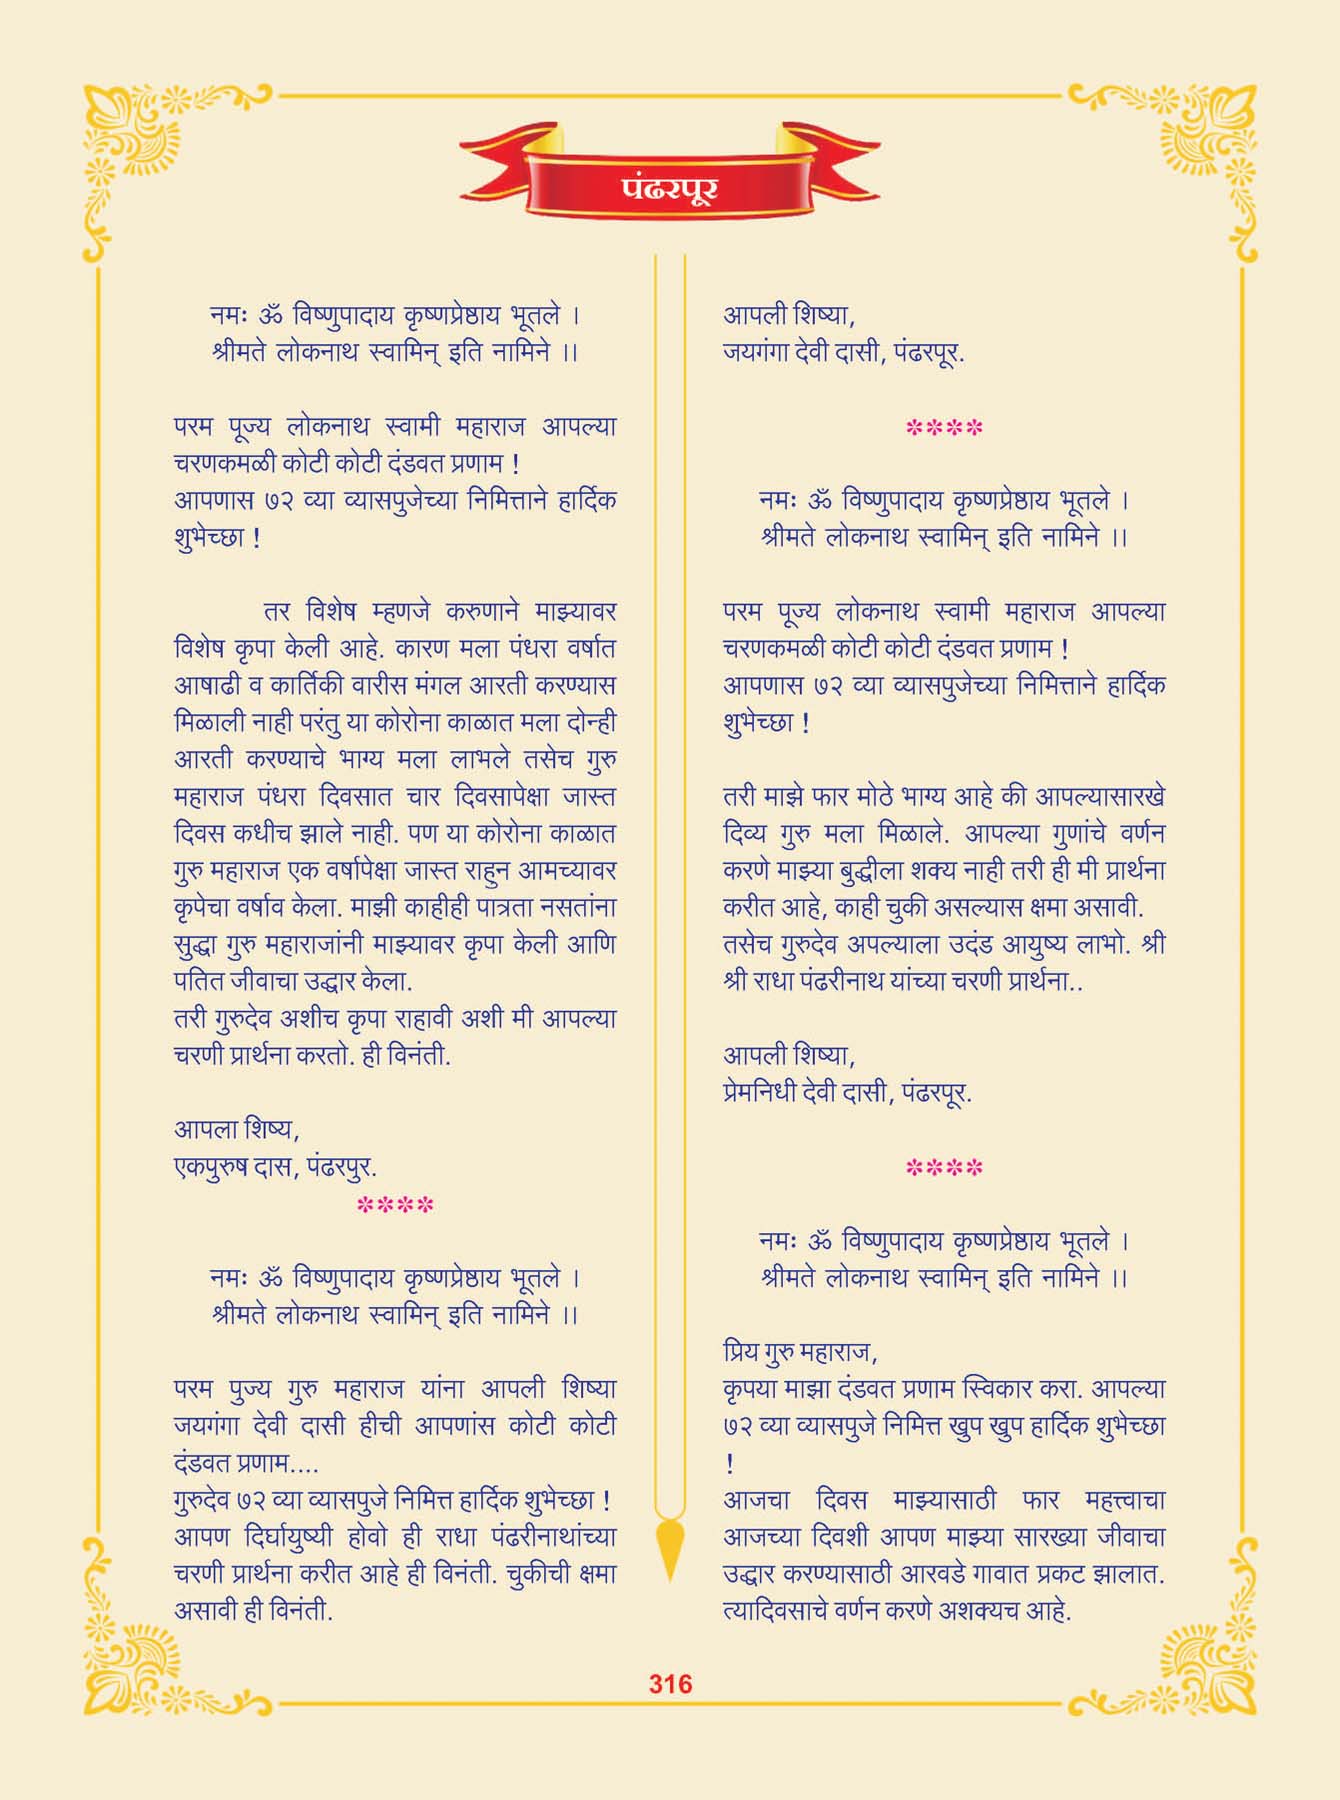 पंढरपूर
नमः ॐ विष्णुपादाय कृष्णप्रेष्ठाय भूतले ।
श्रीमते लोकनाथ स्वामिन् इति नामिने ।।
परम पूज्य लोकनाथ स्वामी महाराज आपल्या
चरणकमळी कोटी कोटी दंडवत प्रणाम !
आपणास ७२ व्या व्यासपुजेच्या निमित्ताने हार्दिक
शुभेच्छा !
तर विशेष म्हणजे करुणाने माझ्यावर
विशेष कृपा केली आहे. कारण मला पंधरा वर्षात
आषाढी व कार्तिकी वारीस मंगल आरती करण्यास
मिळाली नाही परंतु या कोरोना काळात मला दोन्ही
आरती करण्याचे भाग्य मला लाभले तसेच गुरु
महाराज पंधरा दिवसात चार दिवसापेक्षा जास्त
दिवस कधीच झाले नाही. पण या कोरोना काळात
गुरु महाराज एक वर्षापेक्षा जास्त राहुन आमच्यावर
कृपेचा वर्षाव केला. माझी काहीही पात्रता नसतांना
सुद्धा गुरु महाराजांनी माझ्यावर कृपा केली आणि
पतित जीवाचा उद्धार केला.
तरी गुरुदेव अशीच कृपा राहावी अशी मी आपल्या
चरणी प्रार्थना करतो. ही विनंती.
आपला शिष्य,
एकपुरुष दास, पंढरपुर.
****
नमः ॐ विष्णुपादाय कृष्णप्रेष्ठाय भूतले ।
श्रीमते लोकनाथ स्वामिन् इति नामिने ।।
परम पुज्य गुरु महाराज यांना आपली शिष्या
जयगंगा देवी दासी हीची आपणांस कोटी कोटी
दंडवत प्रणाम....
गुरुदेव ७२ व्या व्यासपुजे निमित्त हार्दिक शुभेच्छा !
आपण दिर्घायुष्यी होवो ही राधा पंढरीनाथांच्या
चरणी प्रार्थना करीत आहे ही विनंती. चुकीची क्षमा
असावी ही विनंती.
आपली शिष्या,
जयगंगा देवी दासी, पंढरपूर.
****
नमः ॐ विष्णुपादाय कृष्णप्रेष्ठाय भूतले ।
श्रीमते लोकनाथ स्वामिन् इति नामिने ।।
परम पूज्य लोकनाथ स्वामी महाराज आपल्या
चरणकमळी कोटी कोटी दंडवत प्रणाम !
आपणास ७२ व्या व्यासपुजेच्या निमित्ताने हार्दिक
शुभेच्छा !
तरी माझे फार मोठे भाग्य आहे की आपल्यासारखे
दिव्य गुरु मला मिळाले. आपल्या गुणांचे वर्णन
करणे माझ्या बुद्धीला शक्य नाही तरी ही मी प्रार्थना
करीत आहे, काही चुकी असल्यास क्षमा असावी.
तसेच गुरुदेव अपल्याला उदंड आयुष्य लाभो. श्री
श्री राधा पंढरीनाथ यांच्या चरणी प्रार्थना..
आपली शिष्या,
प्रेमनिधी देवी दासी, पंढरपूर.
****
नमः ॐ विष्णुपादाय कृष्णप्रेष्ठाय भूतले ।
श्रीमते लोकनाथ स्वामिन् इति नामिने ।।
प्रिय गुरु महाराज,
कृपया माझा दंडवत प्रणाम स्विकार करा. आपल्या
७२ व्या व्यासपुजे निमित्त खुप खुप हार्दिक शुभेच्छा
!
आजचा दिवस माझ्यासाठी फार महत्त्वाचा
आजच्या दिवशी आपण माझ्या सारख्या जीवाचा
उद्धार करण्यासाठी आरवडे गावात प्रकट झालात.
त्यादिवसाचे वर्णन करणे अशक्यच आहे.
316